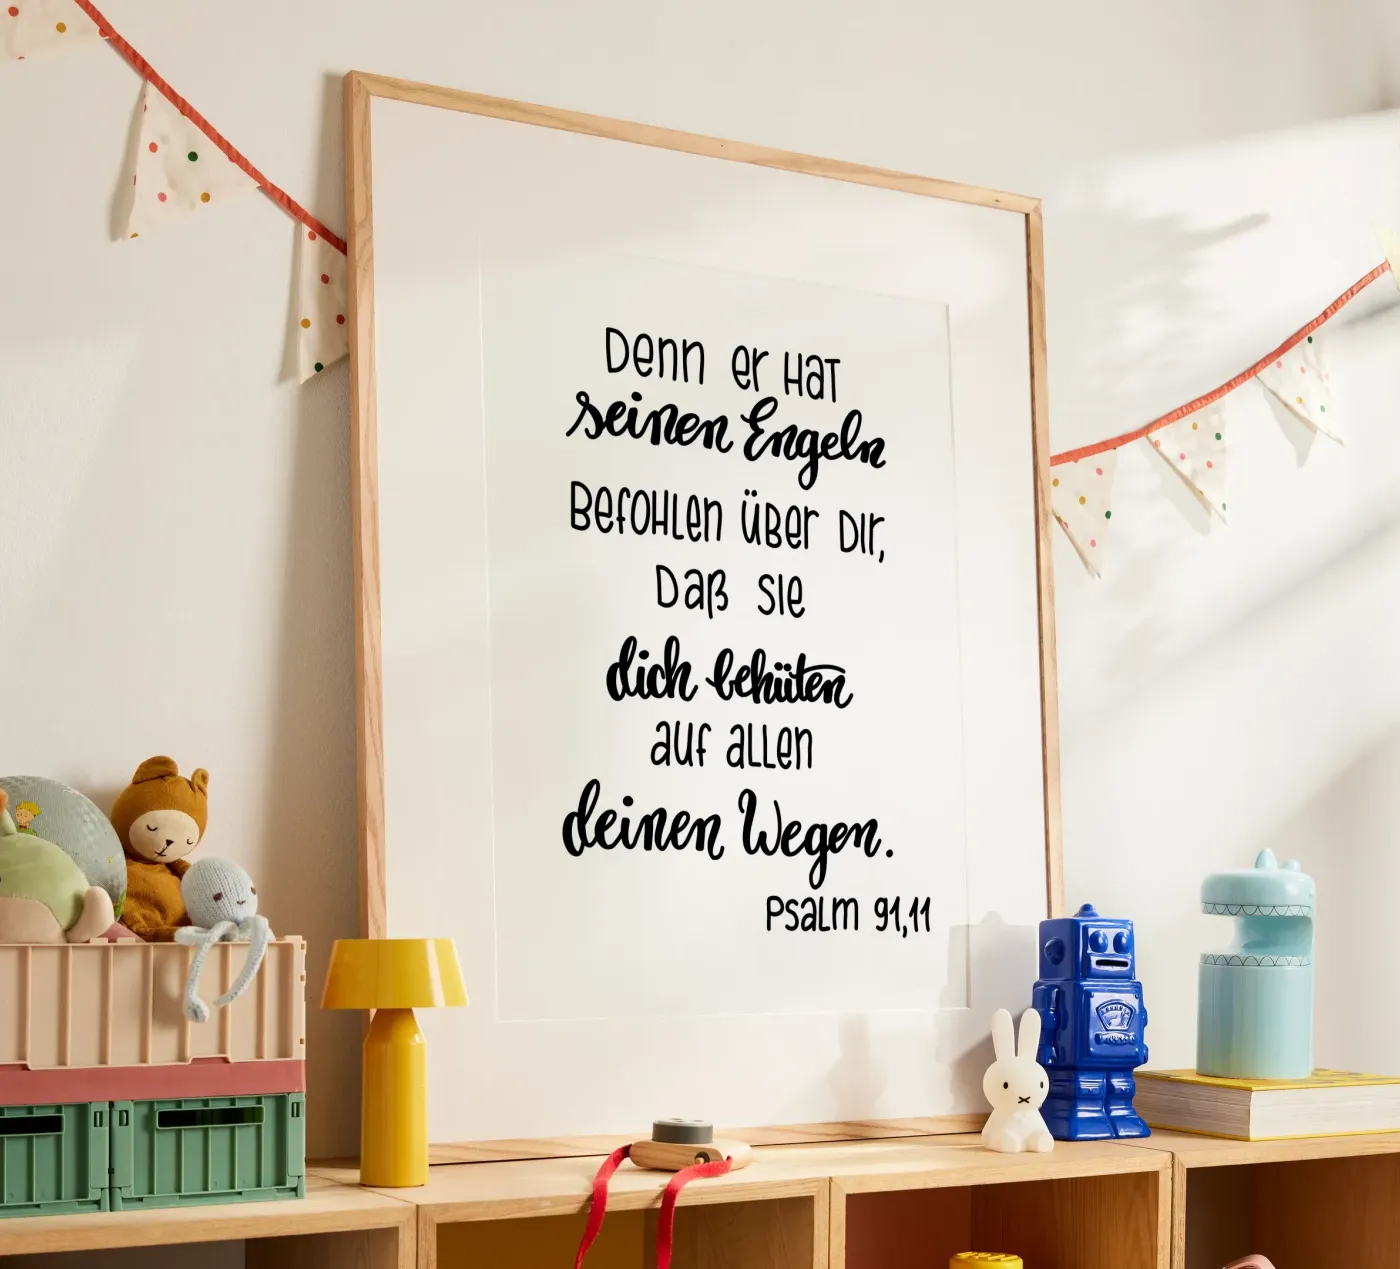 Denn er hat
seinen Engeln
befohlen über dir,
daß sie
dich behüten
auf allen
deinen Wegen.
Psalm 91,11